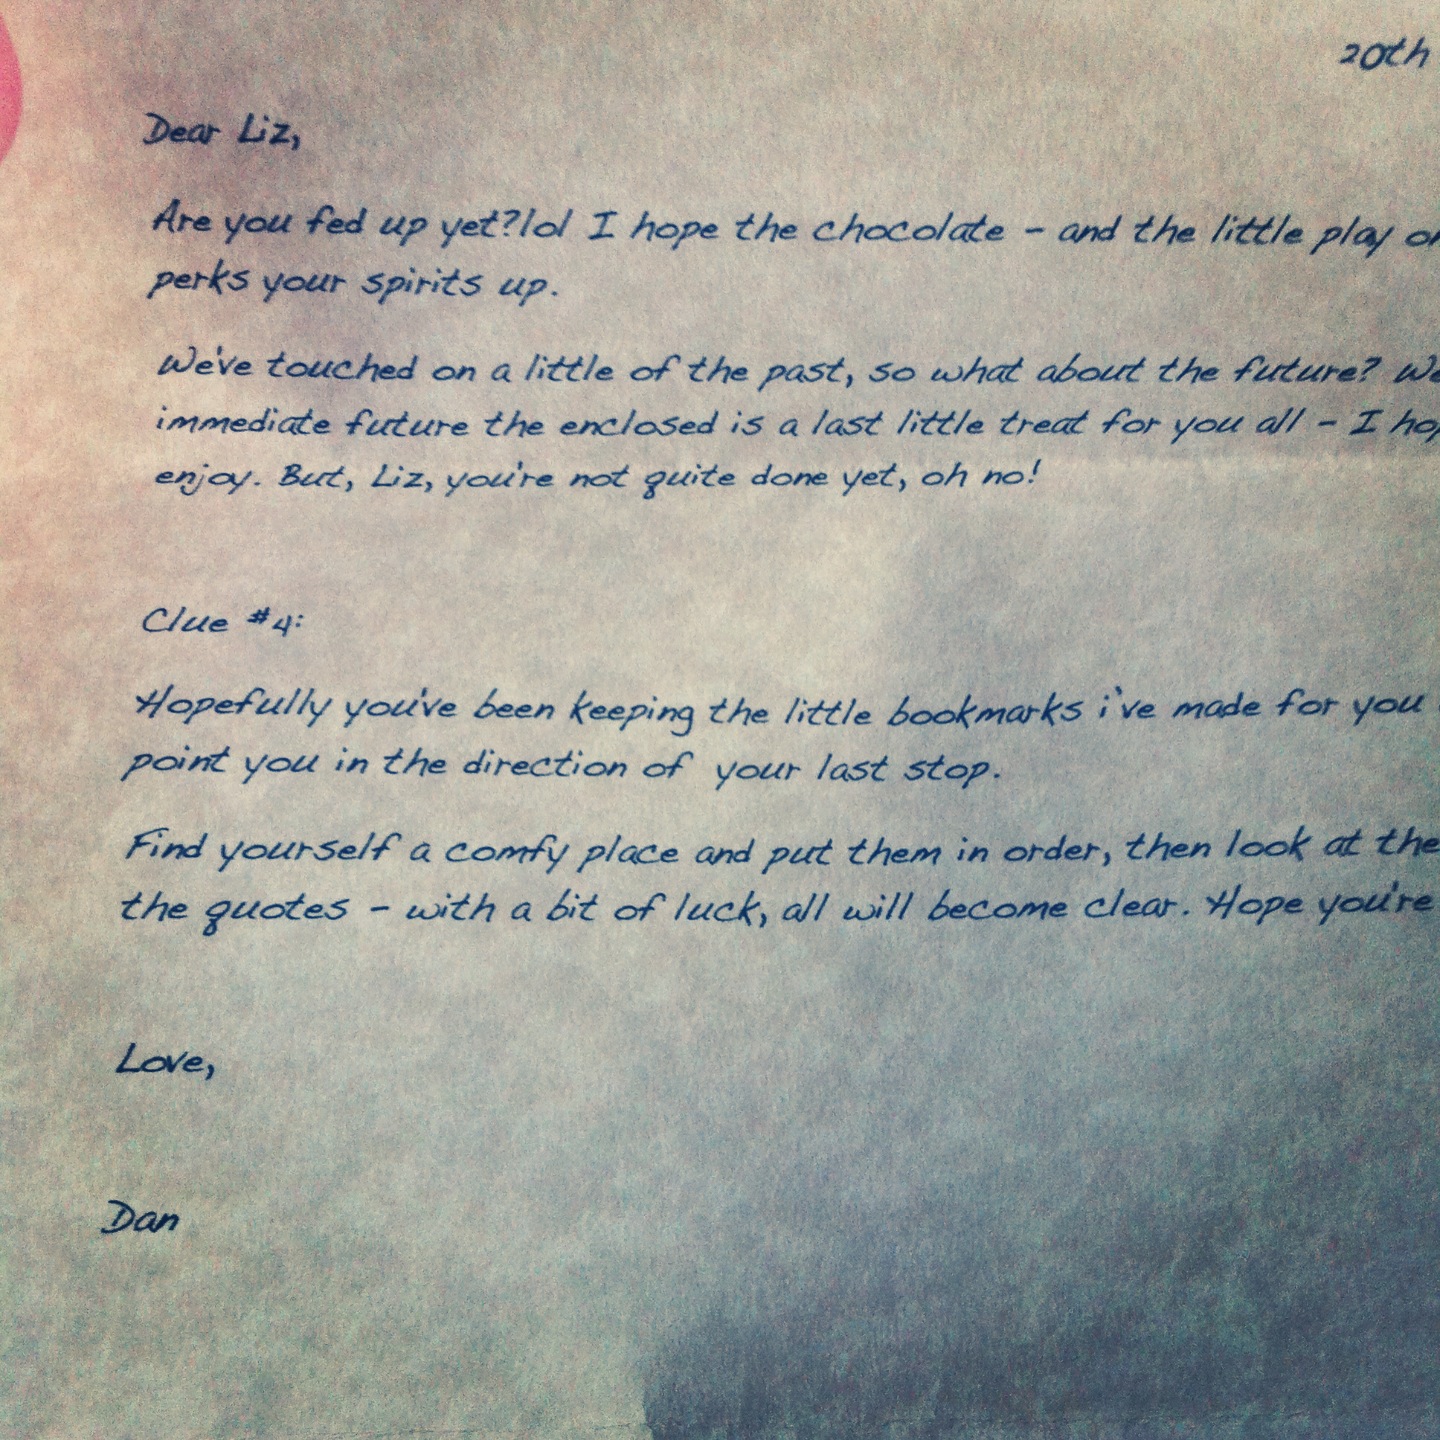 20th
Dear Liz,
Are you fed up yet?lol I hope the chocolate - and the little play
perks your spirits up.
We've touched on a little of the past, so what about the future?
immediate future the enclosed is a last little treat for you all - I
enjoy. But, Liz, you're not quite done yet, oh no!
Clue #4:
Hopefully you've been keeping the little bookmarks i've made for you
point you in the direction of your last stop.
Find yourself a comfy place and put them in order, then look at the
the quotes - with a bit of luck, all will become clear. Hope you're
Love,
Dan